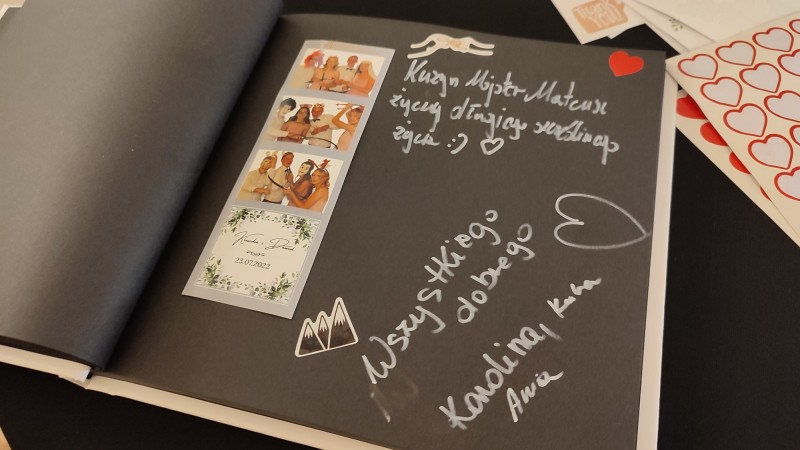 Kuzyn Majster Mateusz
życzy długiego szczęśliwego
życia :)
Wszystkiego
dobrego
Karolina, Kuba
Ania
23.07.2022